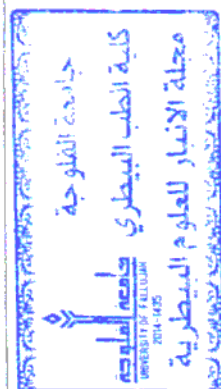 جامعة الفلوجة
كلية الطب البيطري
مجلة الانبار للعلوم البيطرية
جامعة الفلوجة
UNIVERSITY OF FALLUJAH
2014-1435